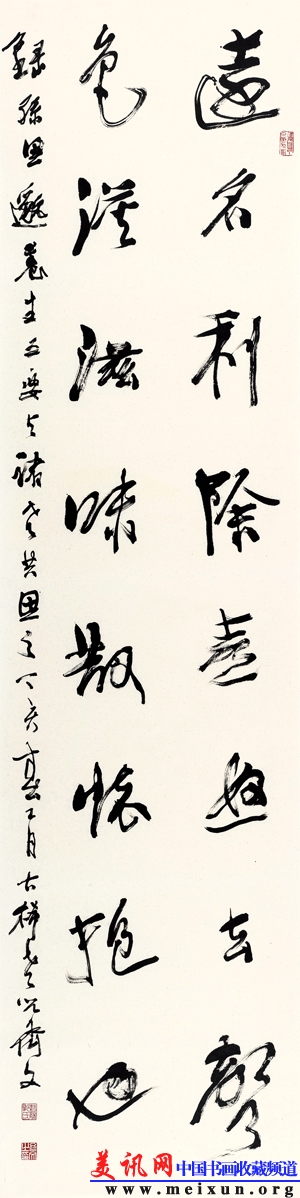 遠名利除喜怒去聲
色淡滋味散懷抱也
錄孫思邈養生五要与諸老共思之丁亥春月古稀文
美讯网 中国书画收藏频道
www.meixun.org